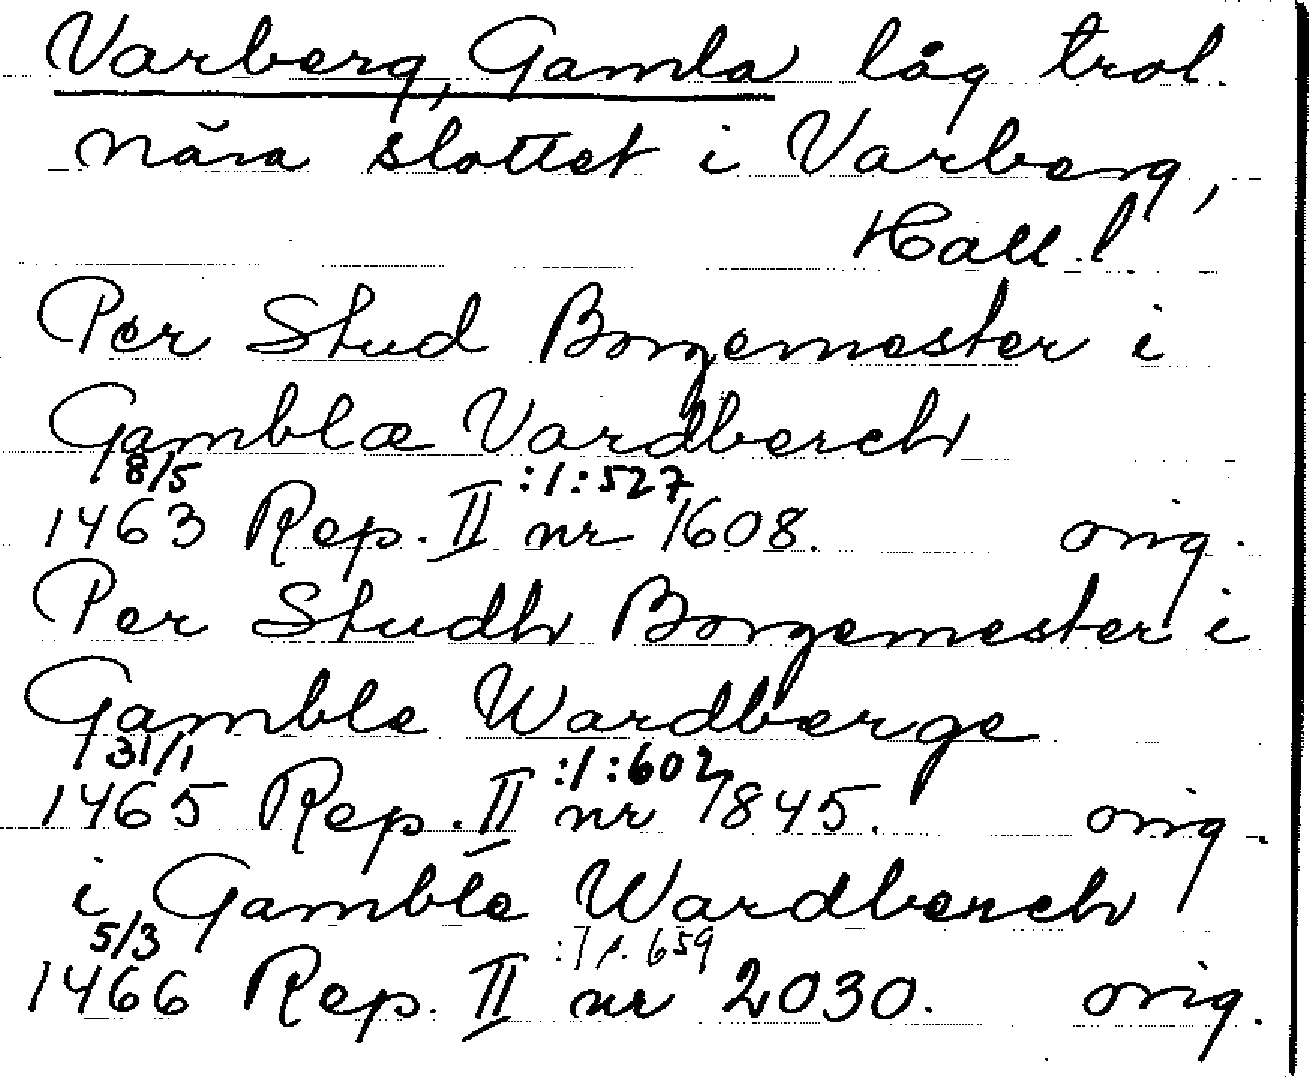 Varberg, Gamla låg trol.
nära slottet i Varberg,
Hall.
Per Stud Borgemester i
Gamblæ Vardberch
8/5 :1:527
1463 Rep. II nr 1608. orig.
Per Studh Borgemester i
Gamble Wardberge
31/1 :1:602
1465 Rep. II nr 1845. orig.
i Gamble Wardberch
5/3 :1 s. 659
1466 Rep. II nr 2030. orig.